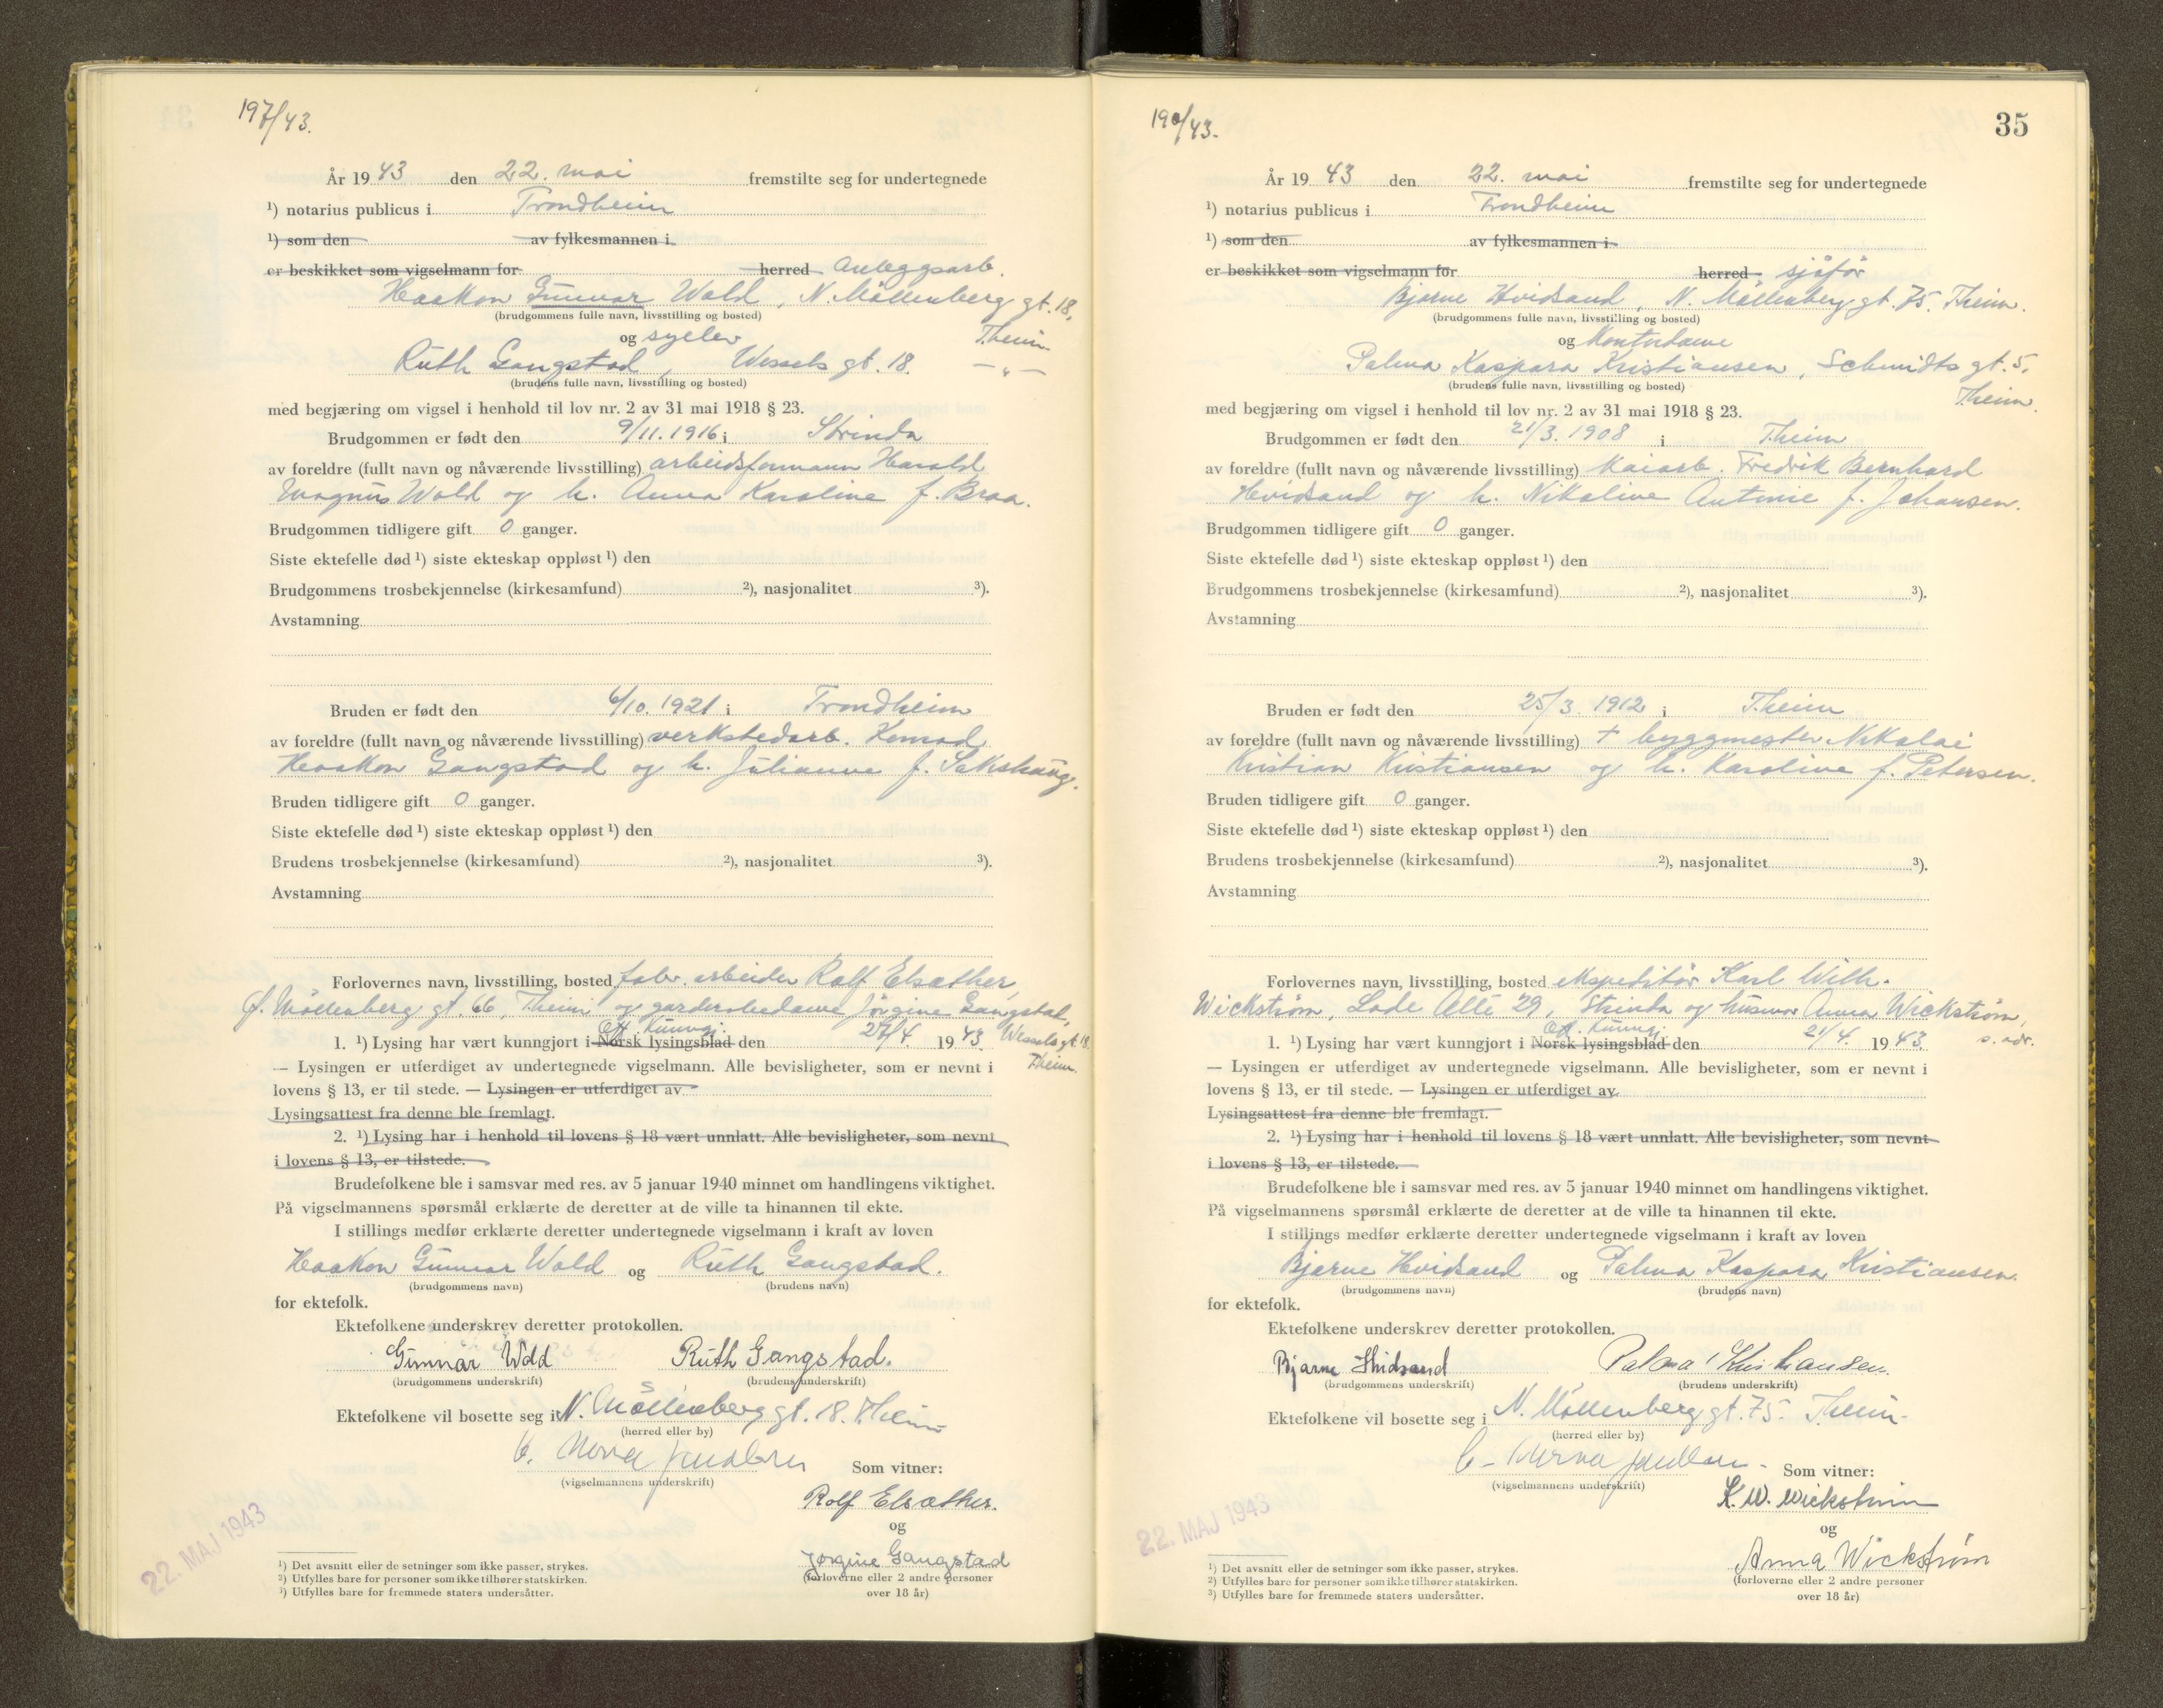 197/43.
År 1943 den 22. mai fremstilte seg for undertegnede
¹) notarius publicus i Trondheim
¹) som den av fylkesmannen i
er beskikket som vigselmann for herred Anleggsarb.
Haakon Gunnar Wold, N. Möllenberg gt. 18,
(brudgommens fulle navn, livsstilling og bosted)
T.heim.
og syelev
Ruth Gangstad, Wessels gt. 18. — " —
(brudens fulle navn, livsstilling og bosted)
med begjæring om vigsel i henhold til lov nr. 2 av 31 mai 1918 § 23.
Brudgommen er født den 9/11. 1916 i Strinda
av foreldre (fullt navn og nåværende livsstilling) arbeidsformann Harald
Magnus Wold og h. Anna Karoline f. Braa.
Brudgommen tidligere gift 0 ganger.
Siste ektefelle død ¹) siste ekteskap oppløst ¹) den
Brudgommens trosbekjennelse (kirkesamfund) ²), nasjonalitet ³).
Avstamning
Bruden er født den 6/10. 1921 i Trondheim
av foreldre (fullt navn og nåværende livsstilling) verkstedarb. Konrad
Haakon Gangstad og h. Julianne f. Sakshaug.
Bruden tidligere gift 0 ganger.
Siste ektefelle død ¹) siste ekteskap oppløst ¹) den
Brudens trosbekjennelse (kirkesamfund) ²), nasjonalitet ³).
Avstamning
Forlovernes navn, livsstilling, bosted fabr. arbeider Rolf Elsæther,
Ö. Möllenberg gt. 66, T.heim og garderobedame Jörgine Gangstad,
Off. Kunngj.
1. ¹) Lysing har vært kunngjort i Norsk lysingsblad den 27/4. 1943. Wessels gt. 18.
T.heim.
— Lysingen er utferdiget av undertegnede vigselmann. Alle bevisligheter, som er nevnt i
lovens § 13, er til stede. — Lysingen er utferdiget av
Lysingsattest fra denne ble fremlagt.
2. ¹) Lysing har i henhold til lovens § 18 vært unnlatt. Alle bevisligheter, som nevnt
i lovens § 13, er tilstede.
Brudefolkene ble i samsvar med res. av 5 januar 1940 minnet om handlingens viktighet.
På vigselmannens spørsmål erklærte de deretter at de ville ta hinannen til ekte.
I stillings medfør erklærte deretter undertegnede vigselmann i kraft av loven
Haakon Gunnar Wold og Ruth Gangstad.
(brudgommens navn) (brudens navn)
for ektefolk.
Ektefolkene underskrev deretter protokollen.
Gunnar Wold Ruth Gangstad.
(brudgommens underskrift) (brudens underskrift)
Ektefolkene vil bosette seg i N. Möllenberg gt. 18. T.heim
(herred eller by)
(vigselmannens underskrift) Som vitner:
Rolf Elsæther.
og
Jørgine Gangstad
(forloverne eller 2 andre personer
over 18 år)
22. MAJ 1943
¹) Det avsnitt eller de setninger som ikke passer, strykes.
²) Utfylles bare for personer som ikke tilhører statskirken.
³) Utfylles bare for fremmede staters undersåtter.
190/43.
35
År 1943 den 22. mai fremstilte seg for undertegnede
¹) notarius publicus i Trondheim
¹) som den av fylkesmannen i
er beskikket som vigselmann for herred sjåför
Bjarne Hvidsand, N. Möllenberg gt. 75. T.heim.
(brudgommens fulle navn, livsstilling og bosted)
og Kontordame
Palma Kaspara Kristiansen, Schmidts gt. 5,
(brudens fulle navn, livsstilling og bosted)
T.heim.
med begjæring om vigsel i henhold til lov nr. 2 av 31 mai 1918 § 23.
Brudgommen er født den 21/3. 1908 i T.heim
av foreldre (fullt navn og nåværende livsstilling) Kaiarb. Fredrik Bernhard
Hvidsand og h. Nikoline Antonie f. Johansen.
Brudgommen tidligere gift 0 ganger.
Siste ektefelle død ¹) siste ekteskap oppløst ¹) den
Brudgommens trosbekjennelse (kirkesamfund) ²), nasjonalitet ³).
Avstamning
Bruden er født den 25/3. 1912 i T.heim
av foreldre (fullt navn og nåværende livsstilling) + byggmester Nikolai
Kristian Kristiansen og h. Karoline f. Petersen.
Bruden tidligere gift 0 ganger.
Siste ektefelle død ¹) siste ekteskap oppløst ¹) den
Brudens trosbekjennelse (kirkesamfund) ²), nasjonalitet ³).
Avstamning
Forlovernes navn, livsstilling, bosted ekspeditör Karl Wilh.
Wickström, Lade Allé 29, Strinda og husmor Anna Wickström,
Off. Kunngj.
1. ¹) Lysing har vært kunngjort i Norsk lysingsblad den 21/4. 1943. s. adr.
— Lysingen er utferdiget av undertegnede vigselmann. Alle bevisligheter, som er nevnt i
lovens § 13, er til stede. — Lysingen er utferdiget av
Lysingsattest fra denne ble fremlagt.
2. ¹) Lysing har i henhold til lovens § 18 vært unnlatt. Alle bevisligheter, som nevnt
i lovens § 13, er tilstede.
Brudefolkene ble i samsvar med res. av 5 januar 1940 minnet om handlingens viktighet.
På vigselmannens spørsmål erklærte de deretter at de ville ta hinannen til ekte.
I stillings medfør erklærte deretter undertegnede vigselmann i kraft av loven
Bjarne Hvidsand og Palma Kaspara Kristiansen.
(brudgommens navn) (brudens navn)
for ektefolk.
Ektefolkene underskrev deretter protokollen.
Bjarne Hvidsand Palma Kristiansen.
(brudgommens underskrift) (brudens underskrift)
Ektefolkene vil bosette seg i N. Möllenberg gt. 75. T.heim.
(herred eller by)
(vigselmannens underskrift) Som vitner:
K. W. Wickström
og
Anna Wickstrøm
(forloverne eller 2 andre personer
over 18 år)
22. MAJ 1943
¹) Det avsnitt eller de setninger som ikke passer, strykes.
²) Utfylles bare for personer som ikke tilhører statskirken.
³) Utfylles bare for fremmede staters undersåtter.